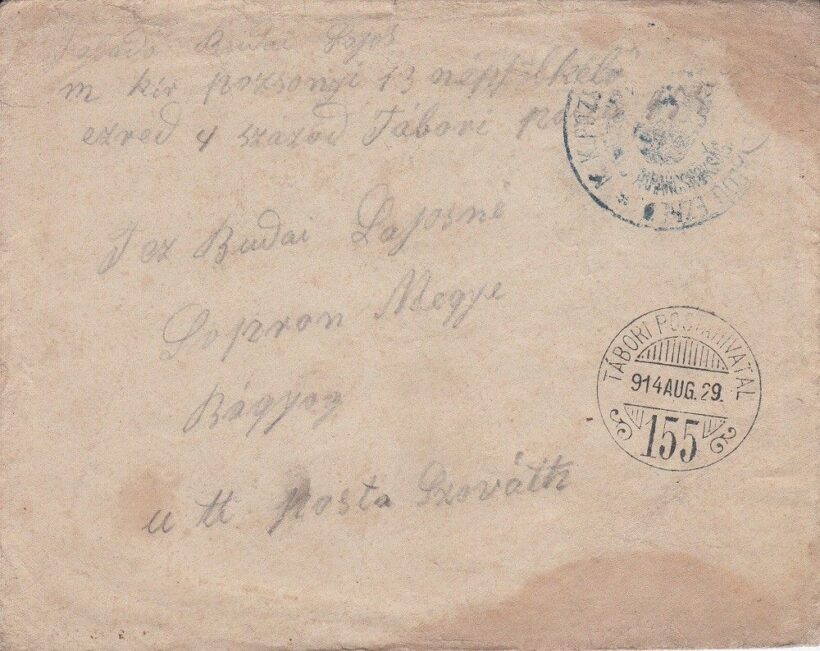 Budai Lajos
m kir pozsonyi 13 népfelkelő
ezred 4 század Tábori
Budai Lajosné
Sopron Megye
Bágyog
u tt posta Szováth
TÁBORI POSTAHIVATAL
914 AUG. 29.
155